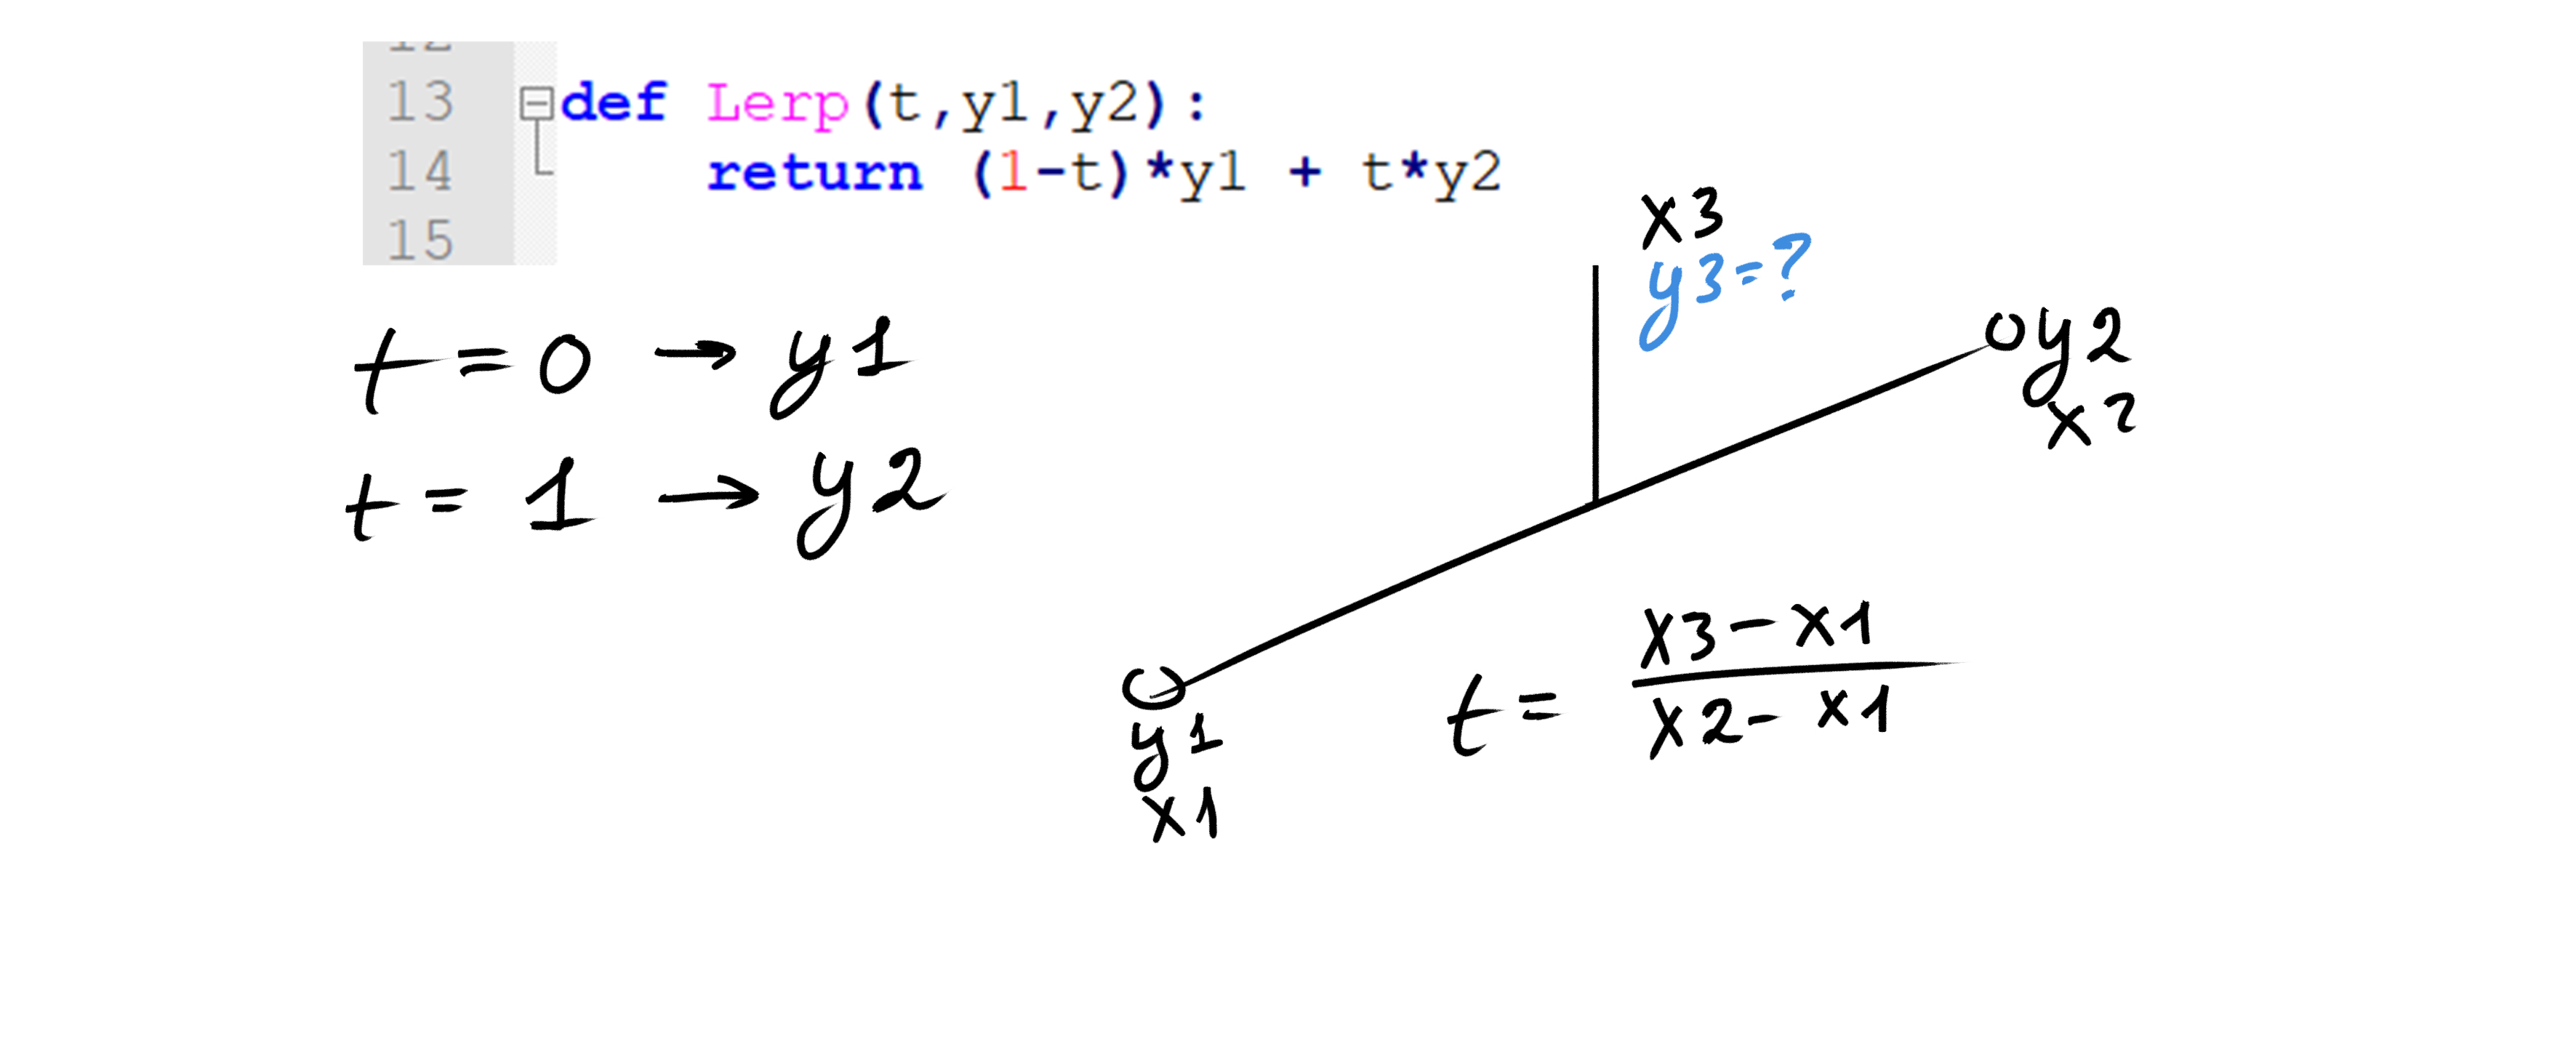 13 def Lerp(t,y1,y2):
14 return (1-t)*y1 + t*y2
15
x3
y3=?
t = 0 → y1
t = 1 → y2
y2
x2
y1
x1
t = x3 - x1
x2 - x1